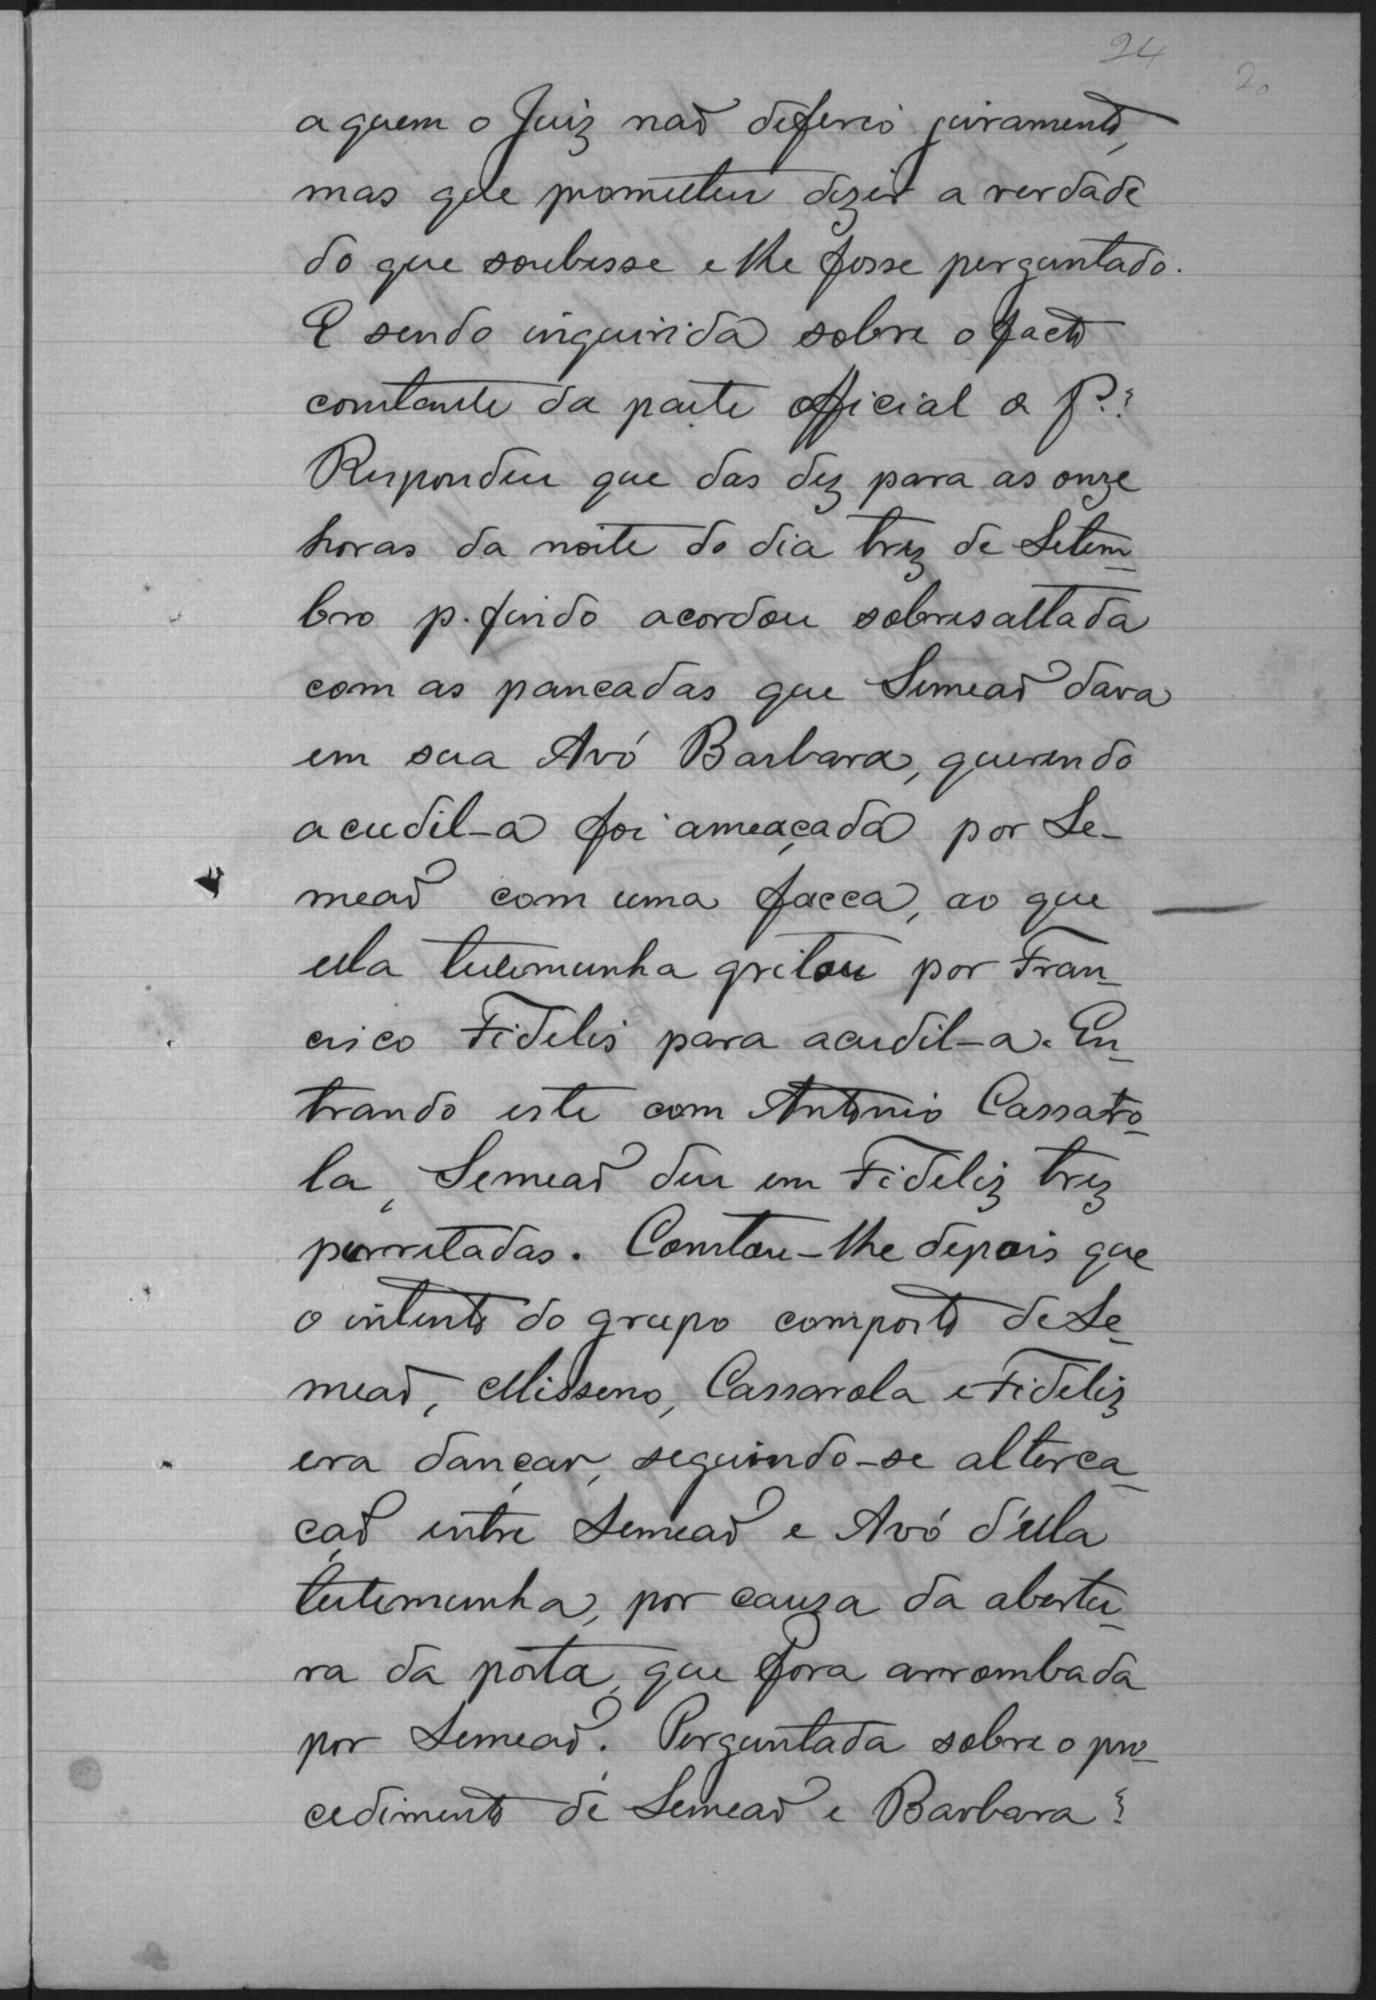 24
20
a quem o Juiz não deferio juramento,
mas que prometteu dizer a verdade
do que soubesse e lhe fosse perguntado.
E sendo inquirida sobre o facto
constante da parte official a f?
Respondeu que das dez para as onze
horas da noite do dia trez de Setem-
bro p. findo acordou sobresaltada
com as pancadas que Semeaõ dava
em sua Avó Barbara, querendo
acudil-a foi ameaçada por Se-
meaõ com uma facca, ao que
ella testemunha gritou por Fran-
cisco Fidelis para acudil-a. En-
trando este com Antonio Cassaro-
la, Semeaõ deu em Fideliz trez
porretadas. Constou-lhe depois que
o intento do grupo composto de Se-
meaõ, Misseno, Cassarola e Fideliz
era dançar, seguindo-se alterca-
çaõ entre Semeaõ e Avó d'ella
testemunha, por causa da abertu-
ra da porta, que fora arrombada
por Semeaõ. Perguntada sobre o pro-
cedimento de Semeaõ e Barbara?